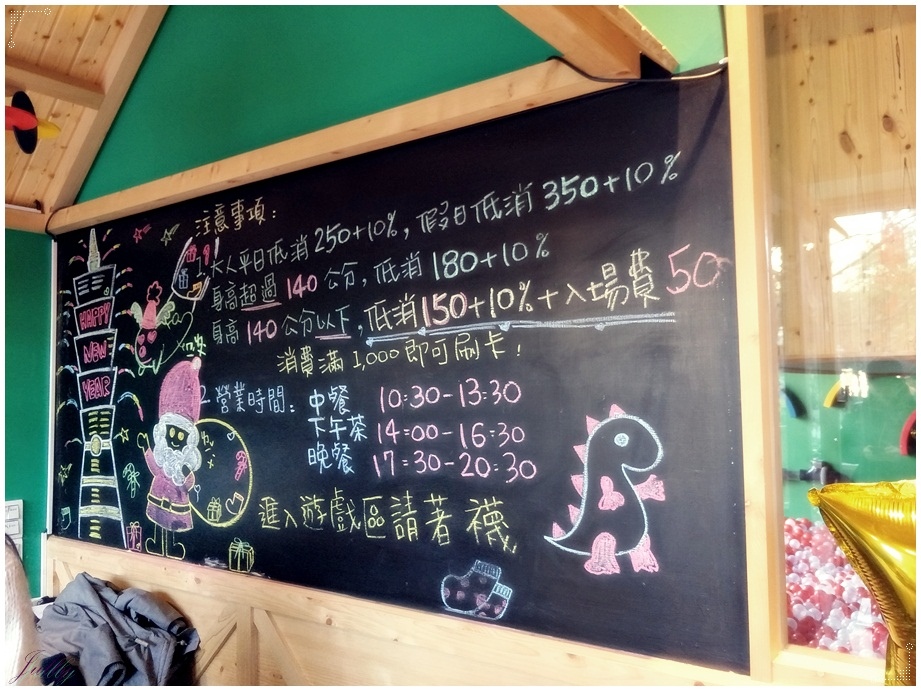 注意事項：
1. 大人平日低消250+10%，假日低消350+10%
身高超過140公分，低消180+10%
身高140公分以下，低消150+10%+入場費50
消費滿1,000即可刷卡！
2. 營業時間： 中餐 10:30-13:30
下午茶 14:00-16:30
晚餐 17:30-20:30
進入遊戲區請著襪
HAPPY
NEW
YEAR